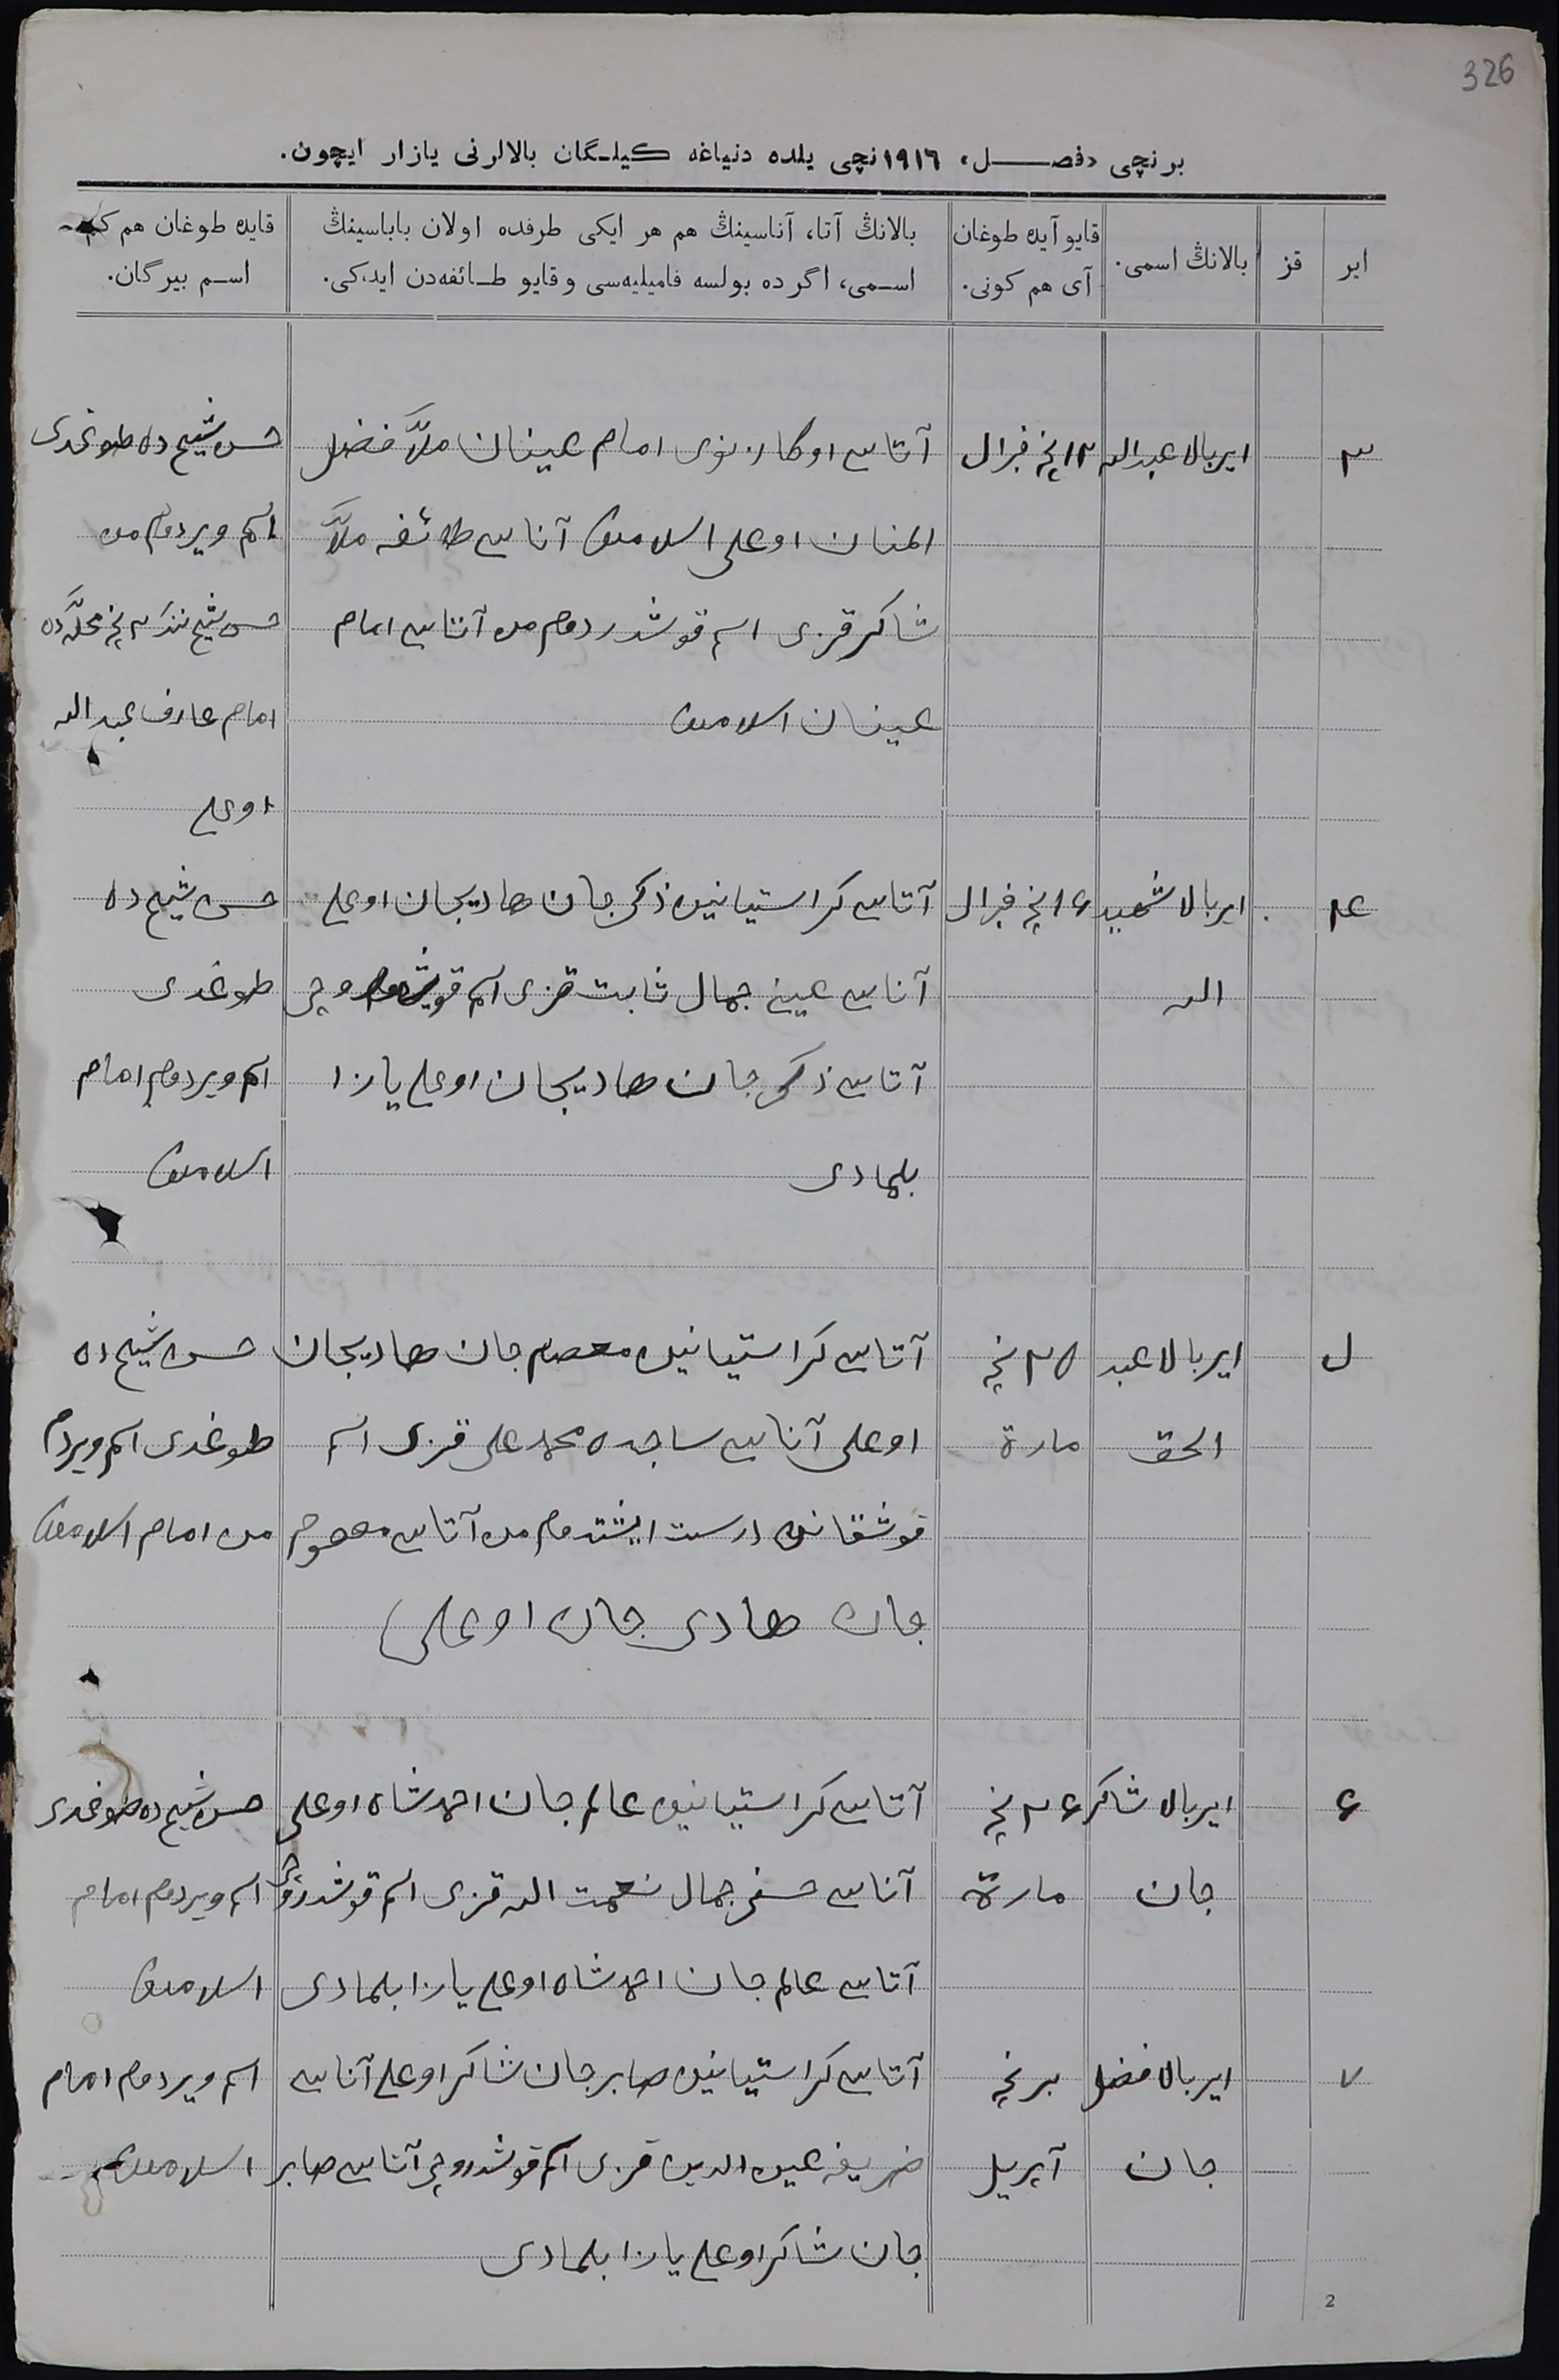 326
برنچی «فصل» ١٩١٦نچی یلده دنیاغه کیلگان بالالرنی یازار ایچون.
ایر
قز
بالانڭ اسمی.
قایو آیده طوغان
آی هم کونی.
بالانڭ آتا، آناسینڭ هم هر ایکی طرفده اولان باباسینڭ
اسمی، اگر ده بولسه فامیلیه‌سی و قایو طائفه‌دن ایدکی.
قایده طوغان هم کم
اسم بیرگان.
٣
ایر بالا عبدالله
١٢ نچی فبرال
آتاسی اوکازنوی امام عینان ملاّ فضل
المنان اوغلی اسلاموف آناسی طائفه ملاّ
شاکر قزی اسم قوشدردم من آتاسی امام
عینان اسلاموف
حسن شیخ ده طوغدی
اسم ویردم من
حسن شیخ نڭ ٢ نچی محلّه ده
امام عارف عبدالله
اوغلی
۴
ایر بالا شهید
الله
١۶ نچی فبرال
آتاسی کراستیانین ذکی جان هادیجان اوغلی
آناسی عینی جمال ثابت قزی اسم
آتاسی ذکی جان هادیجان اوغلی یازا
بلمادی
حسن شیخ ده
طوغدی
اسم ویردم امام
اسلاموف
۵
ایر بالا عبد
الحق
٢۵ نچی
مارت
آتاسی کراستیانین معصوم جان هادیجان
اوغلی آناسی ساجده محمد علی قزی اسم
قوشقانن درست ایشتدم من آتاسی معصوم
جان هادی جان اوغلی
حسن شیخ ده
طوغدی اسم ویردم
من امام اسلاموف
۶
ایر بالا شاکر
جان
٢۶ نچی
مارت
آتاسی کراستیانین عالم جان احمدشاه اوغلی
آناسی حسنی جمال نعمت الله قزی اسم قوشدروچی
آتاسی عالم جان احمدشاه اوغلی یازا بلمادی
حسن شیخ ده طوغدی
اسم ویردم امام
اسلاموف
٧
ایر بالا فضل
جان
برنچی
آپریل
آتاسی کراستیانین صابر جان شاکر اوغلی آناسی
ضریفه عین الدین قزی اسم قوشدروچی آتاسی صابر
جان شاکر اوغلی یازا بلمادی
اسم ویردم امام
اسلاموف
2